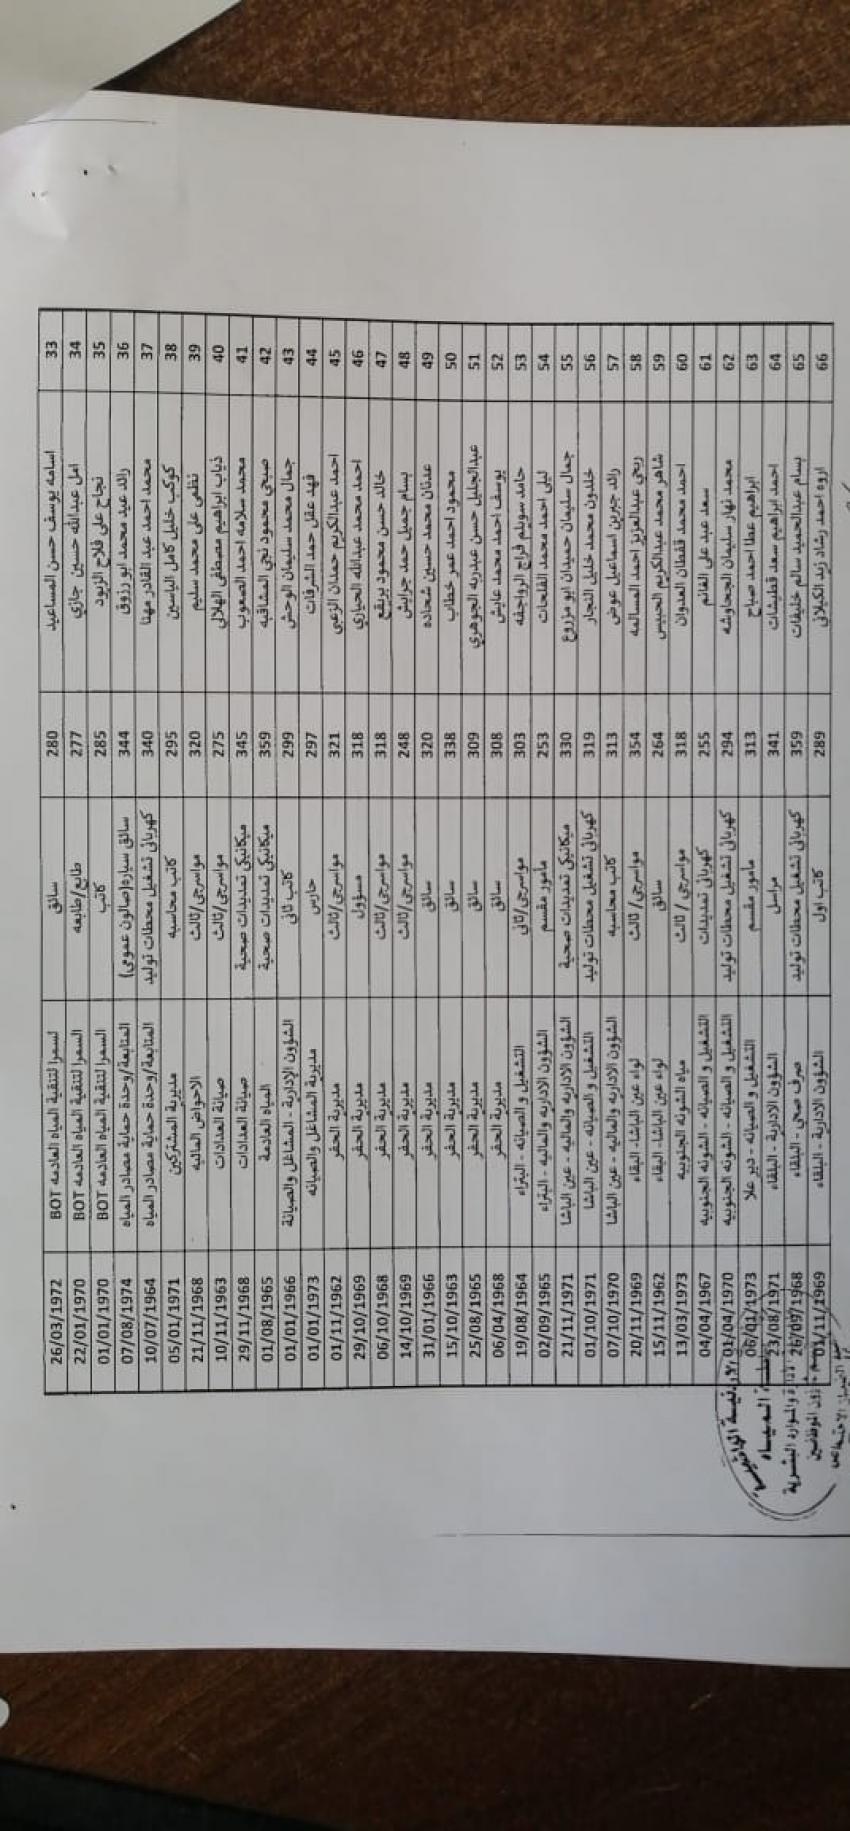 33 اسامه يوسف حسن المساعيد 280 سائق لسمرا لتنقية المياه العادمه BOT 26/03/1972
34 امل عبدالله حسين جازي 277 طابع/طابعه السمرا لتنقية المياه العادمه BOT 22/01/1970
35 نجاح علي فلاح الزيود 285 كاتب السمرا لتنقية المياه العادمه BOT 01/01/1970
36 رائد عيد محمد ابو رزوق 344 سائق سيارة(صالون عمومي) المتابعة/وحدة حماية مصادر المياه 07/08/1974
37 محمد احمد عبد القادر مهنا 340 كهربائي تشغيل محطات توليد المتابعة/وحدة حماية مصادر المياه 10/07/1964
38 كوكب خليل كامل الياسين 295 كاتب محاسبه مديرية المشتركين 05/01/1971
39 نظمي علي محمد سليم 320 مواسرجي/ثالث الاحواض المائيه 21/11/1968
40 ذياب ابراهيم مصطفى الهلالي 275 مواسرجي/ثالث صيانة العدادات 10/11/1963
41 محمد سلامه احمد الصعوب 345 ميكانيكي تمديدات صحية صيانة العدادات 29/11/1968
42 صبحي محمود نجي المشاقبه 359 ميكانيكي تمديدات صحية المياه العادمة 01/08/1965
43 جمال محمد سليمان الوحش 299 كاتب ثاني الشؤون الإدارية - المشاغل والصيانة 01/01/1966
44 فهد عقل حمد الشرفات 297 حارس مديرية المشاغل والصيانه 01/01/1973
45 احمد عبدالكريم حمدان الزعبي 321 مواسرجي/ثالث مديرية الحفر 01/11/1962
46 احمد محمد عبدالله الحياري 318 مسؤول مديرية الحفر 29/10/1969
47 خالد حسن محمود بريقع 318 مواسرجي/ثالث مديرية الحفر 06/10/1968
48 بسام جميل حمد جرايش 248 مواسرجي/ثالث مديرية الحفر 14/10/1969
49 عدنان محمد حسين شحاده 320 سائق مديرية الحفر 31/01/1966
50 محمود احمد عمر خطاب 338 سائق مديرية الحفر 15/10/1963
51 عبدالجليل حسن عبدربه الجوهري 309 سائق مديرية الحفر 25/08/1965
52 يوسف احمد محمد عايش 308 سائق مديرية الحفر 06/04/1968
53 حامد سويلم فراج الرواجفه 303 مواسرجي/ثاني التشغيل و الصيانه - البتراء 19/08/1964
54 ليلى احمد محمد الفلحات 253 مأمور مقسم الشؤون الاداريه والماليه - البتراء 02/09/1965
55 جمال سليمان حميدان ابو مزروع 330 ميكانيكي تمديدات صحية الشؤون الاداريه والماليه - عين الباشا 21/11/1971
56 خلدون محمد خليل النجار 319 كهربائي تشغيل محطات توليد التشغيل و الصيانه - عين الباشا 01/10/1971
57 رائد جبرين اسماعيل عوض 313 كاتب محاسبه الشؤون الاداريه والماليه - عين الباشا 07/10/1970
58 ربحي عبدالعزيز احمد المسالمه 354 مواسرجي/ ثالث لواء عين الباشا- البقاء 20/11/1969
59 شاهر محمد عبدالكريم الحبيس 264 سائق لواء عين الباشا- البقاء 15/11/1962
60 احمد محمد قفطان العدوان 318 مواسرجي / ثالث مياه الشونه الجنوبيه 13/03/1973
61 سعد عبد علي الغانم 255 كهربائي تمديدات التشغيل و الصيانه - الشونه الجنوبيه 04/04/1967
62 محمد نهار سليمان الجحاوشه 294 كهربائي تشغيل محطات توليد التشغيل و الصيانه - الشونه الجنوبيه 01/04/1970
63 ابراهيم عطا احمد صباح 313 مأمور مقسم التشغيل و الصيانه - دير علا 06/01/1973
64 احمد ابراهيم سعد قطيشات 341 مراسل الشؤون الادارية - البلقاء 23/08/1971
65 بسام عبدالحميد سالم خليفات 359 كهربائي تشغيل محطات توليد صرف صحي - البلقاء 26/09/1968
66 اروه احمد رشاد زيد الكيلاني 289 كاتب اول الشؤون الادارية - البلقاء 01/11/1969